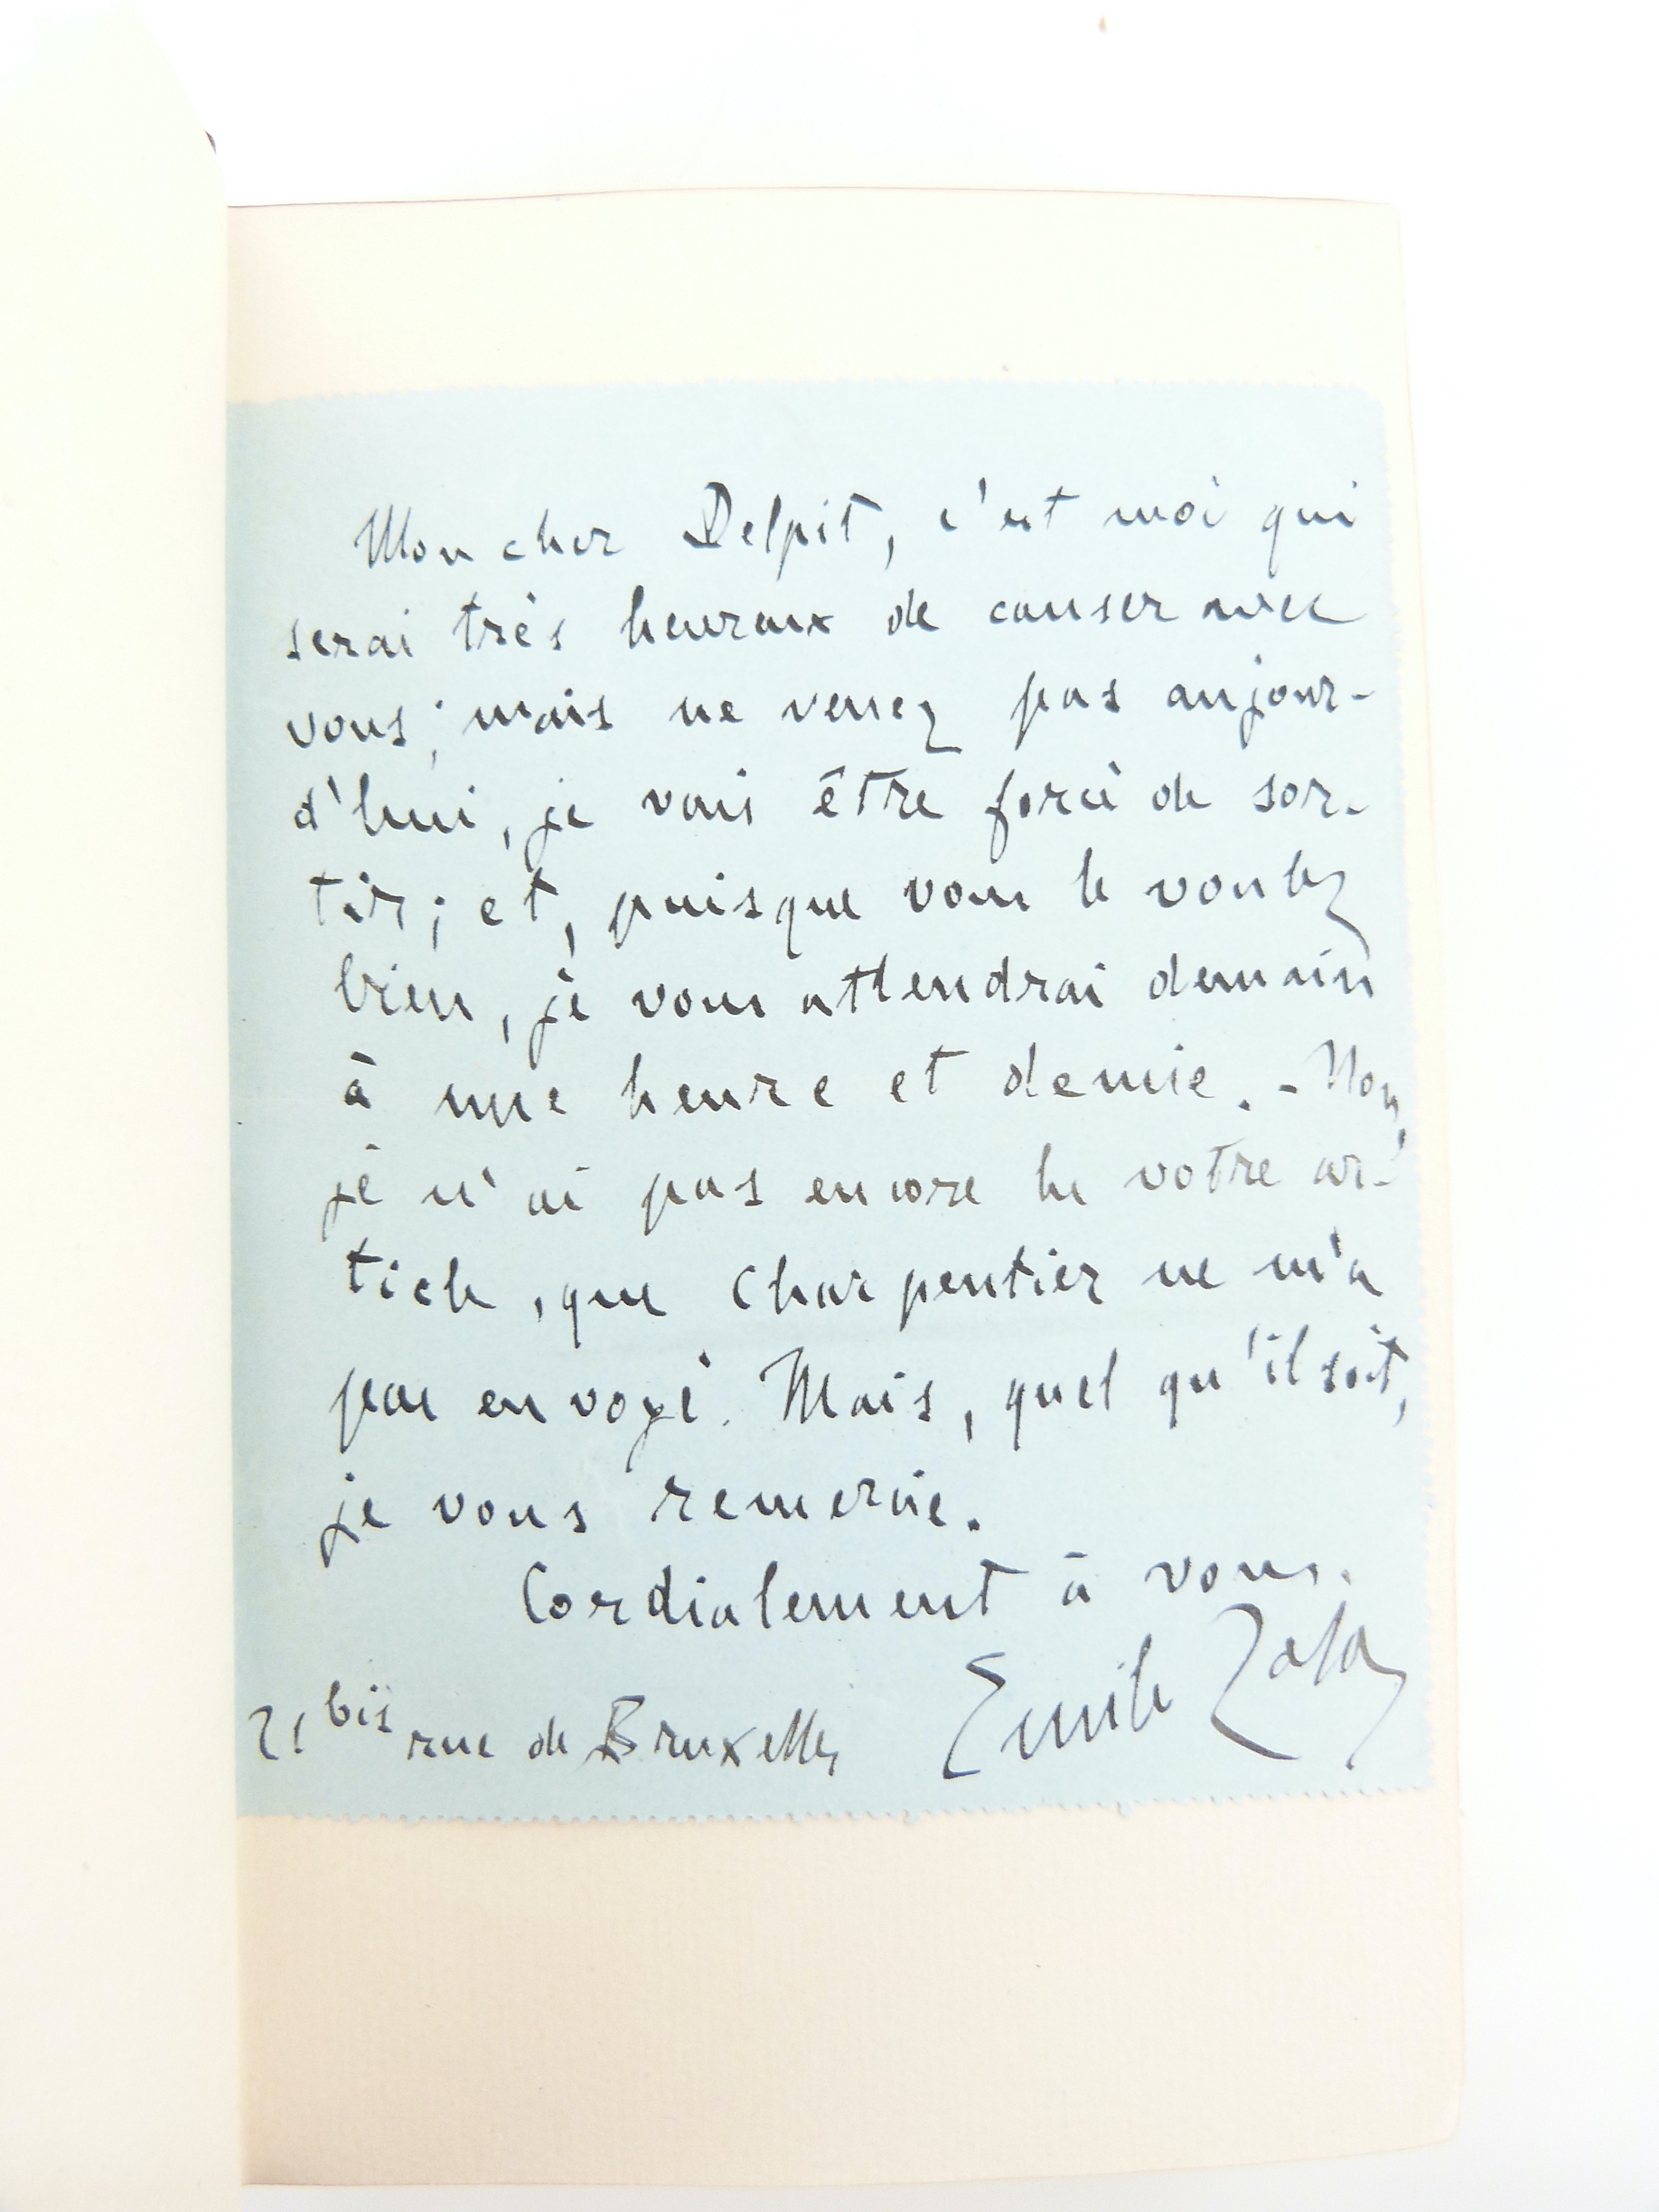 Mon cher Delpit, c'est moi qui
serai très heureux de causer avec
vous ; mais ne venez pas aujour-
d'hui, je vais être forcé de sor-
tir ; et, puisque vous le voulez
bien, je vous attendrai demain
à une heure et demie. - Non,
je n'ai pas encore lu votre ar-
ticle, que Charpentier ne m'a
pas envoyé. Mais, quel qu'il soit,
je vous remercie.
Cordialement à vous.
Emile Zola
21 bis rue de Bruxelles